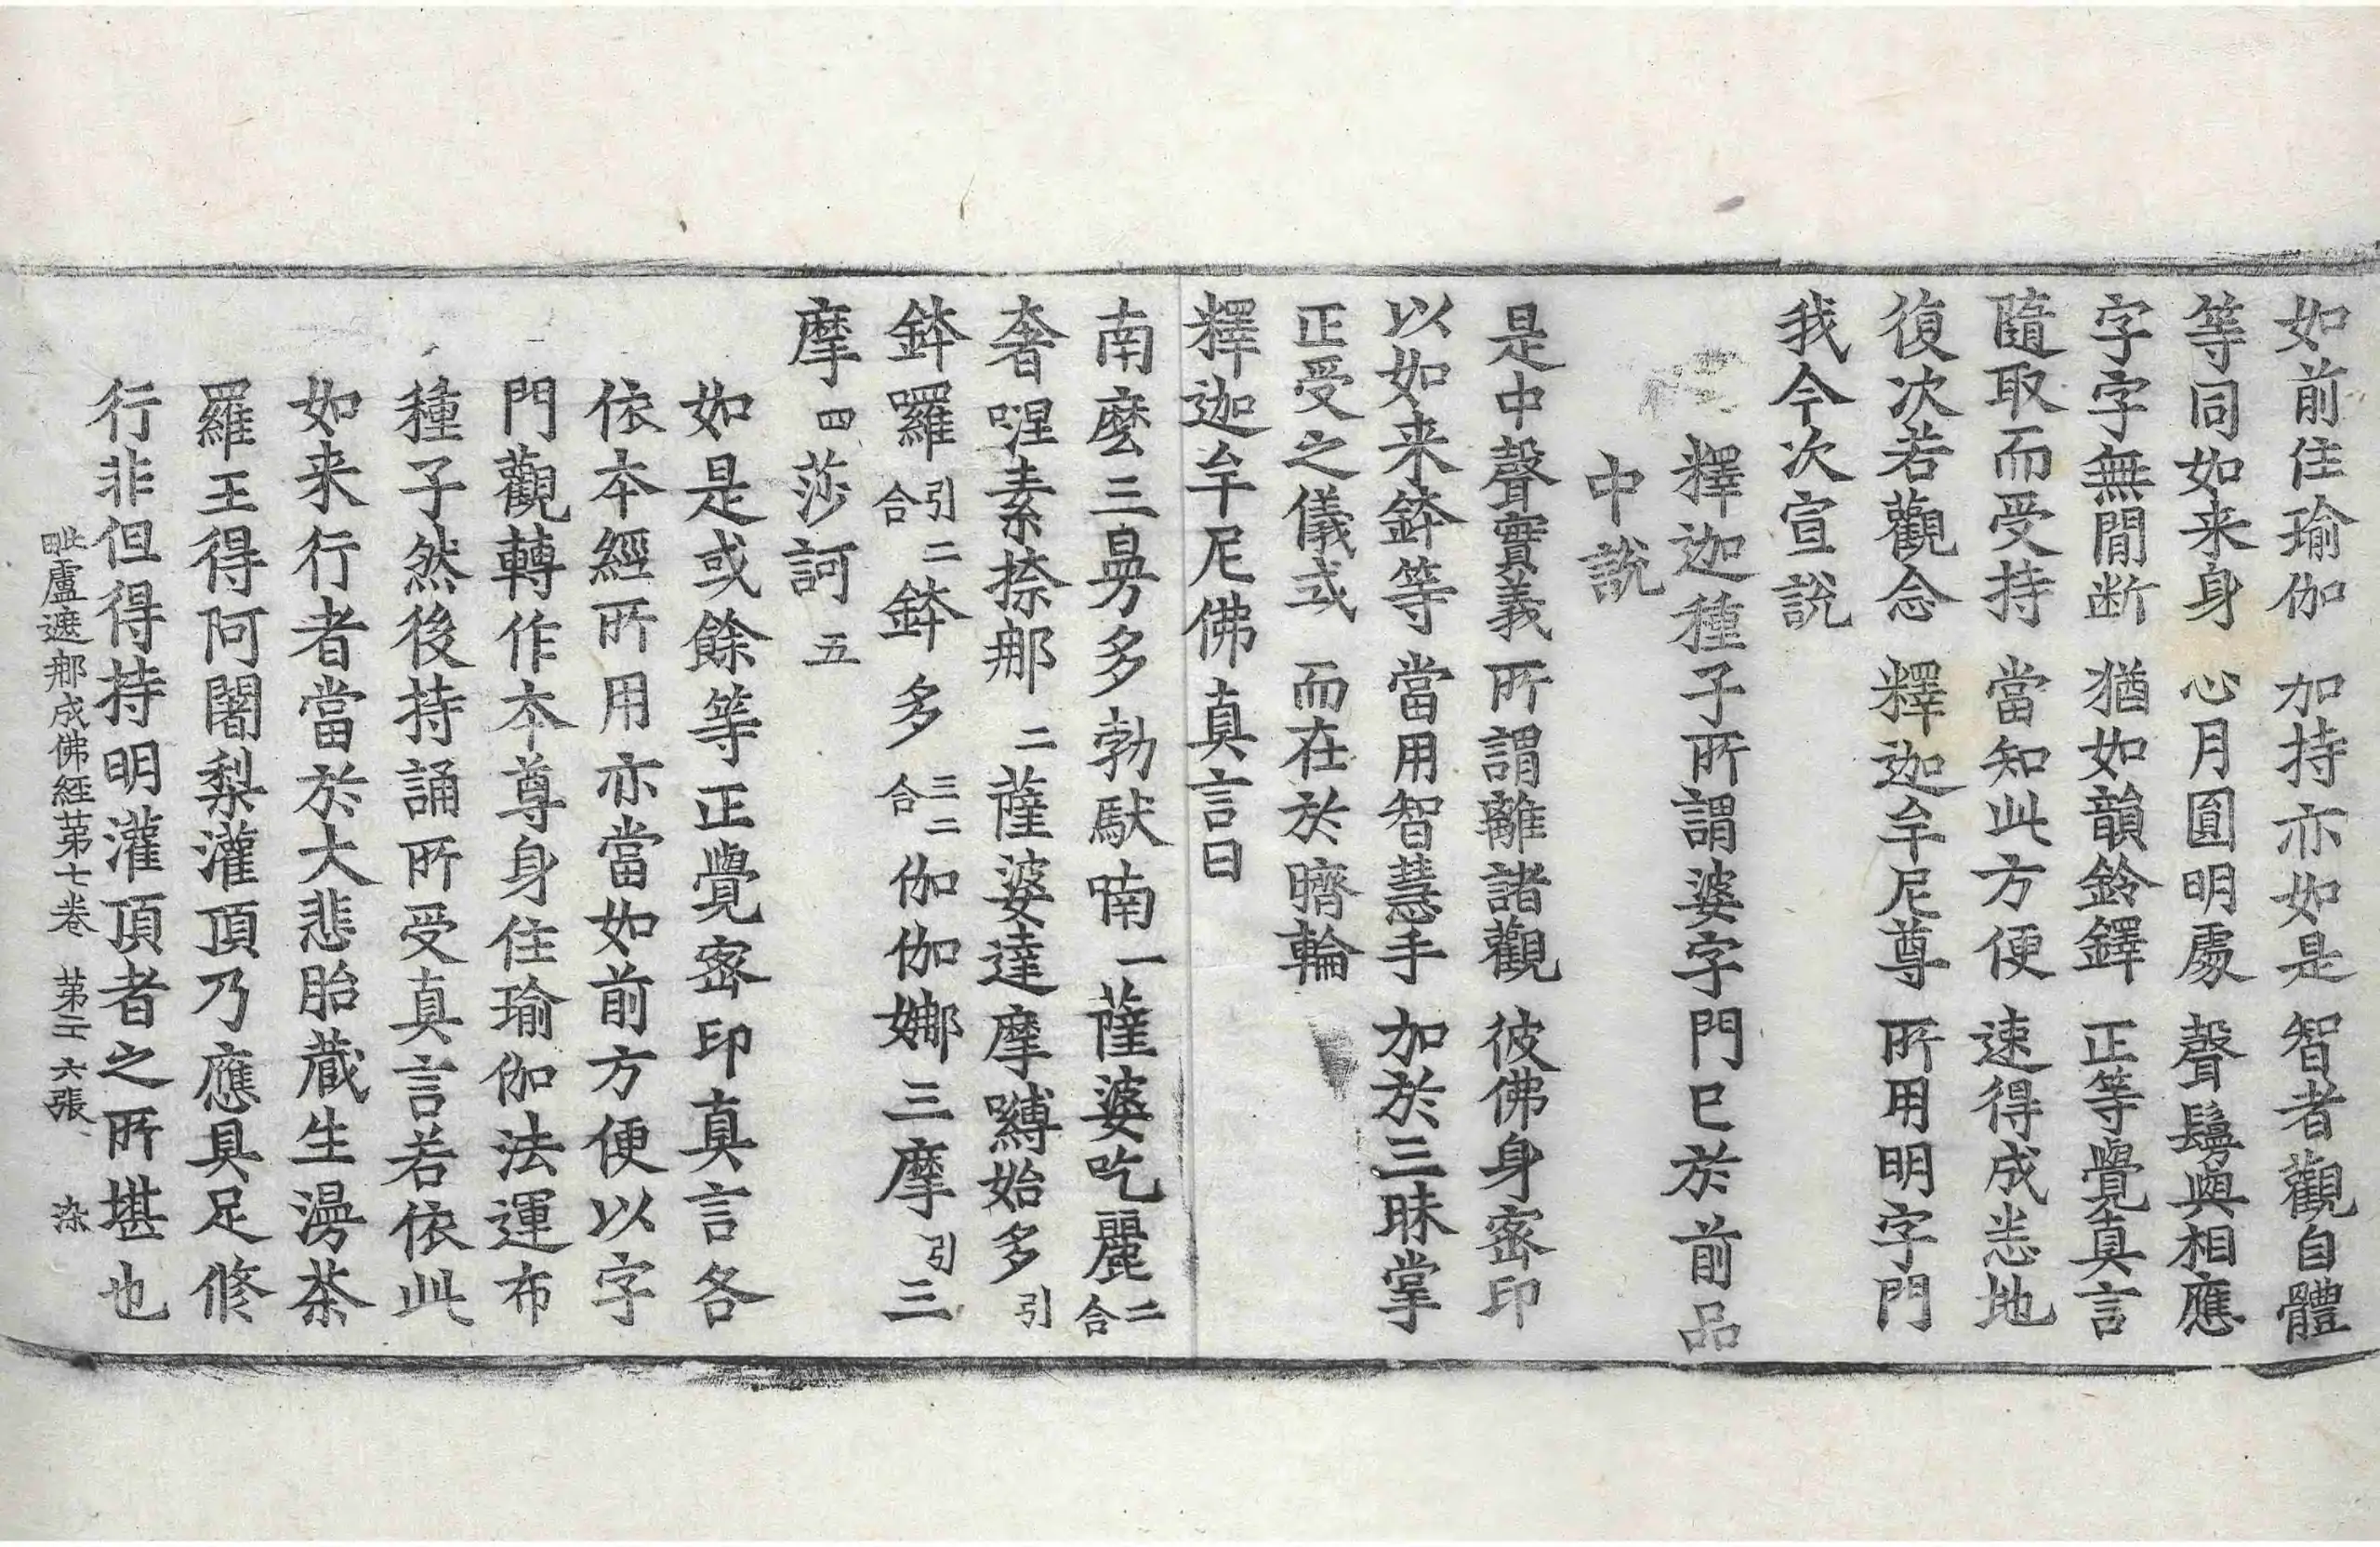 如前住瑜伽 加持亦如是 智者觀自體
等同如来身 心月圓明處 聲鬘與相應
字字無閒断 猶如韻鈴鐸 正等覺真言
隨取而受持 當知此方便 速得成悉地
復次若觀念 釋迦牟尼尊 所用明字門
我今次宣說
釋迦種子所謂婆字門已於前品
中說
是中聲實義 所謂離諸觀 彼佛身密印
以如来鉢等 當用智慧手 加於三昧掌
正受之儀式 而在於臍輪
釋迦牟尼佛真言曰
南麽三曼多勃馱喃一薩婆吃麗二合
奢哩素捺那二薩婆達摩嚩始多引
鉢囉引二合鉢多三二合伽伽娜三摩引三
摩四莎訶五
如是或餘等正覺密印真言各
依本經所用亦當如前方便以字
門觀轉作本尊身住瑜伽法運布
種子然後持誦所受真言若依此
如来行者當於大悲胎藏生漫荼
羅王得阿闍梨灌頂乃應具足修
行非但得持明灌頂者之所堪也
毗盧遮那成佛經苐七卷 苐二十六張 染